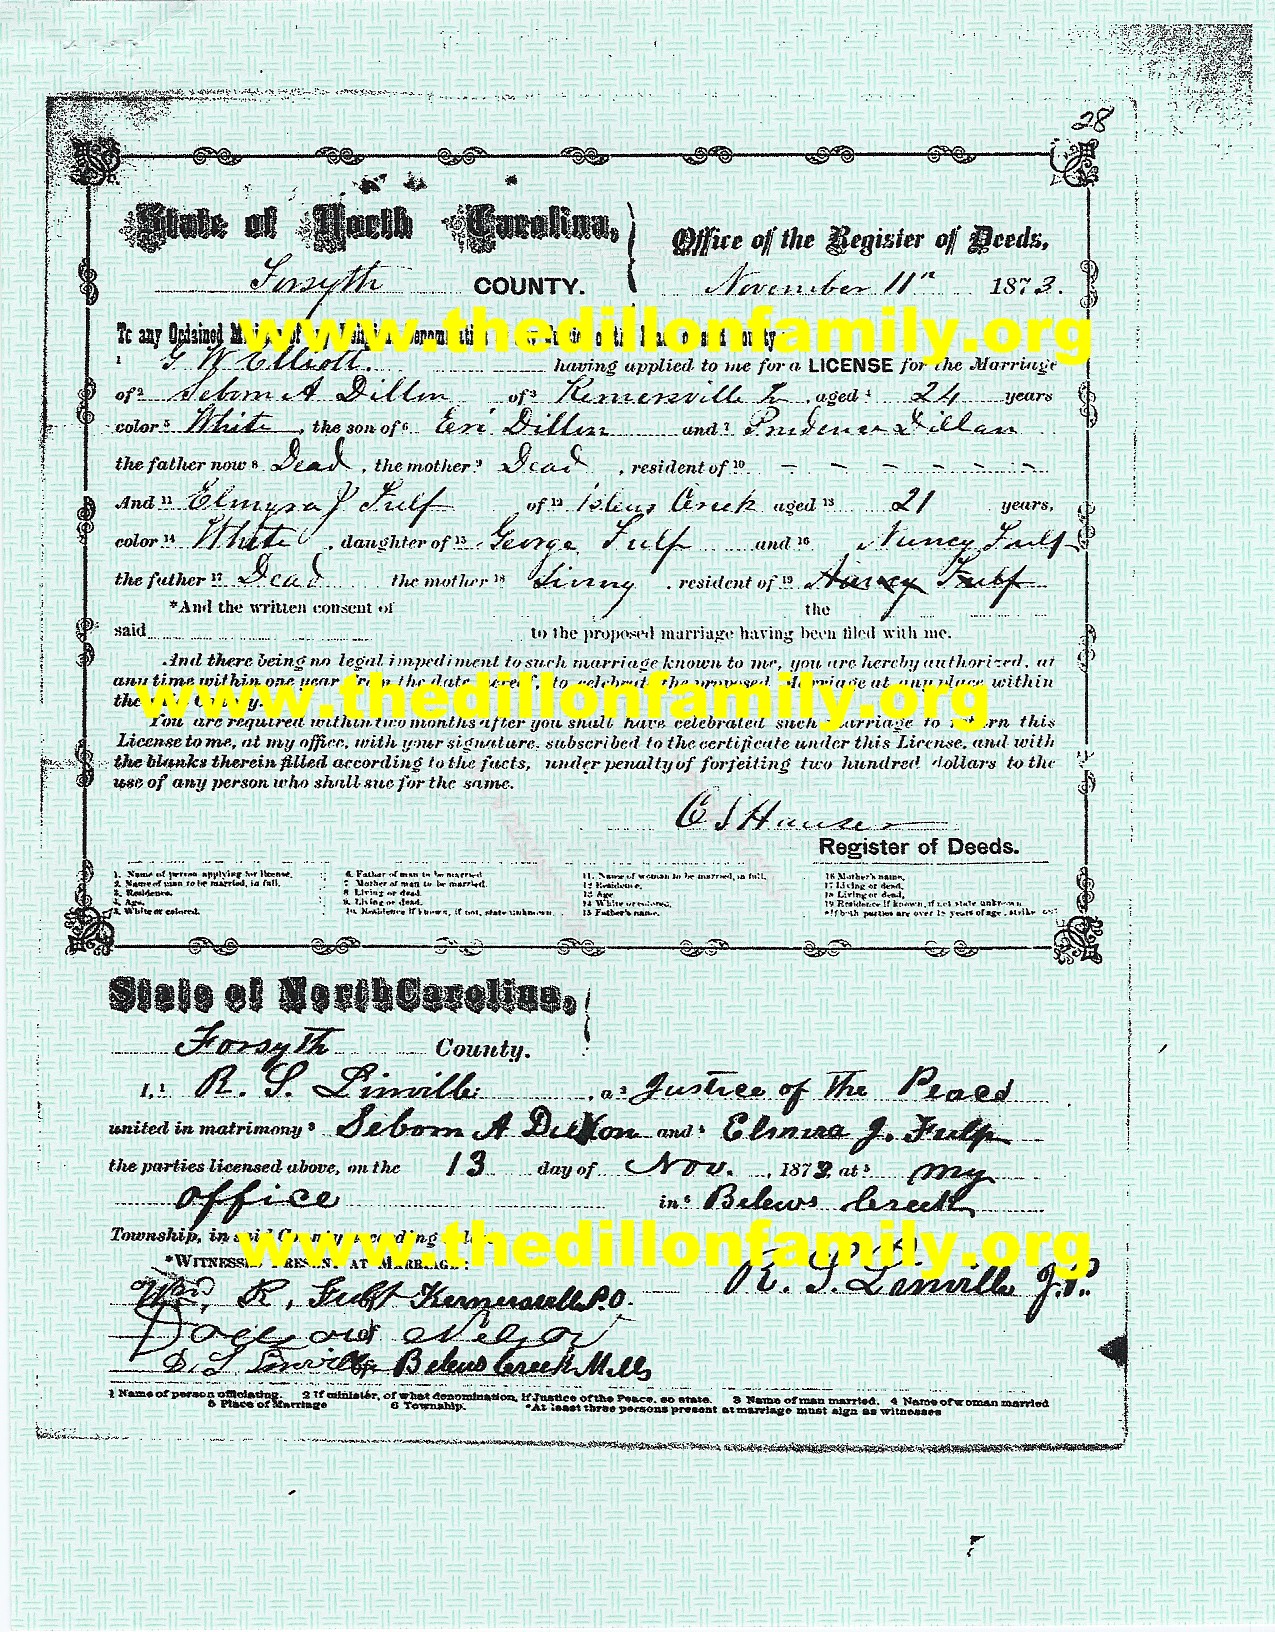 28
State of North Carolina,
Office of the Register of Deeds,
Forsyth COUNTY.
November 11th 1873.
www.thedillonfamily.org
To any Ordained Minister of any Religious Denomination or any Justice of the Peace for said County
1 G W Elliott. having applied to me for a LICENSE for the Marriage
of 2 Seborn A Dillon of 3 Kernersville aged 4 24 years
color 5 White, the son of 6 Dillon and 7 Prudence Dillan
the father now 8 Dead, the mother 9 Dead, resident of 10 – – – – – –
And 11 Elmyra J Fulf of 12 Creek aged 13 21 years,
color 14 White, daughter of 15 George Fulf and 16 Nancy Fulf
the father 17 Dead the mother 18 Living, resident of 19 Nancy Fulf
*And the written consent of the
said to the proposed marriage having been filed with me.
And there being no legal impediment to such marriage known to me, you are hereby authorized, at
any time within one year from the date hereof, to celebrate the proposed Marriage at any place within
www.thedillonfamily.org
the said County.
You are required within two months after you shall have celebrated such marriage to return this
License to me, at my office, with your signature, subscribed to the certificate under this License, and with
the blanks therein filled according to the facts, under penalty of forfeiting two hundred dollars to the
use of any person who shall sue for the same.
C S Hauser
Register of Deeds.
1. Name of person applying for license.
2. Name of man to be married, in full.
3. Residence.
4. Age.
5. White or colored.
6. Father of man to be married
7 Mother of man to be married.
8 Living or dead.
9. Living or dead.
10. Residence if known, if not, state unknown.
11. Name of woman to be married, in full.
12 Residence.
13 Age
14 White or colored.
15 Father's name.
16 Mother's name.
17 Living or dead.
18 Living or dead.
19 Residence if known, if not state unknown
*If both parties are over 18 years of age, strike out
State of North Carolina,
Forsyth County.
I, 1 R. S. Linville, a 2 Justice of The Peace
united in matrimony 3 Seborn A Dillon and 4 Elmira J. Fulp
the parties licensed above, on the 13 day of Nov. 1873, at 5 my
office in 6 Belews Creek
Township, in said County, according to law.
www.thedillonfamily.org
*WITNESSES PRESENT AT MARRIAGE:
R. S. Linville J.P.
Wm. R. Fulp Kernersville P.O.
Nelson
D. S. Linville Belews Creek Mills
1 Name of person officiating. 2 If minister, of what denomination, if Justice of the Peace, so state. 3 Name of man married. 4 Name of woman married
5 Place of Marriage 6 Township. *At least three persons present at marriage must sign as witnesses